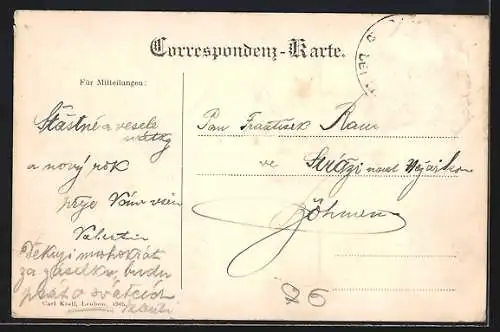 Correspondenz-Karte.
Für Mitteilungen:
Šťastné a veselé
svátky
a nový rok
přeje Vám všem
Valentin
Děkuji mnohokrát
za zásilku, budu
psát o svátcích
Carl Krell, Leuben, 1905.
Pan František
ve nad
Böhmen